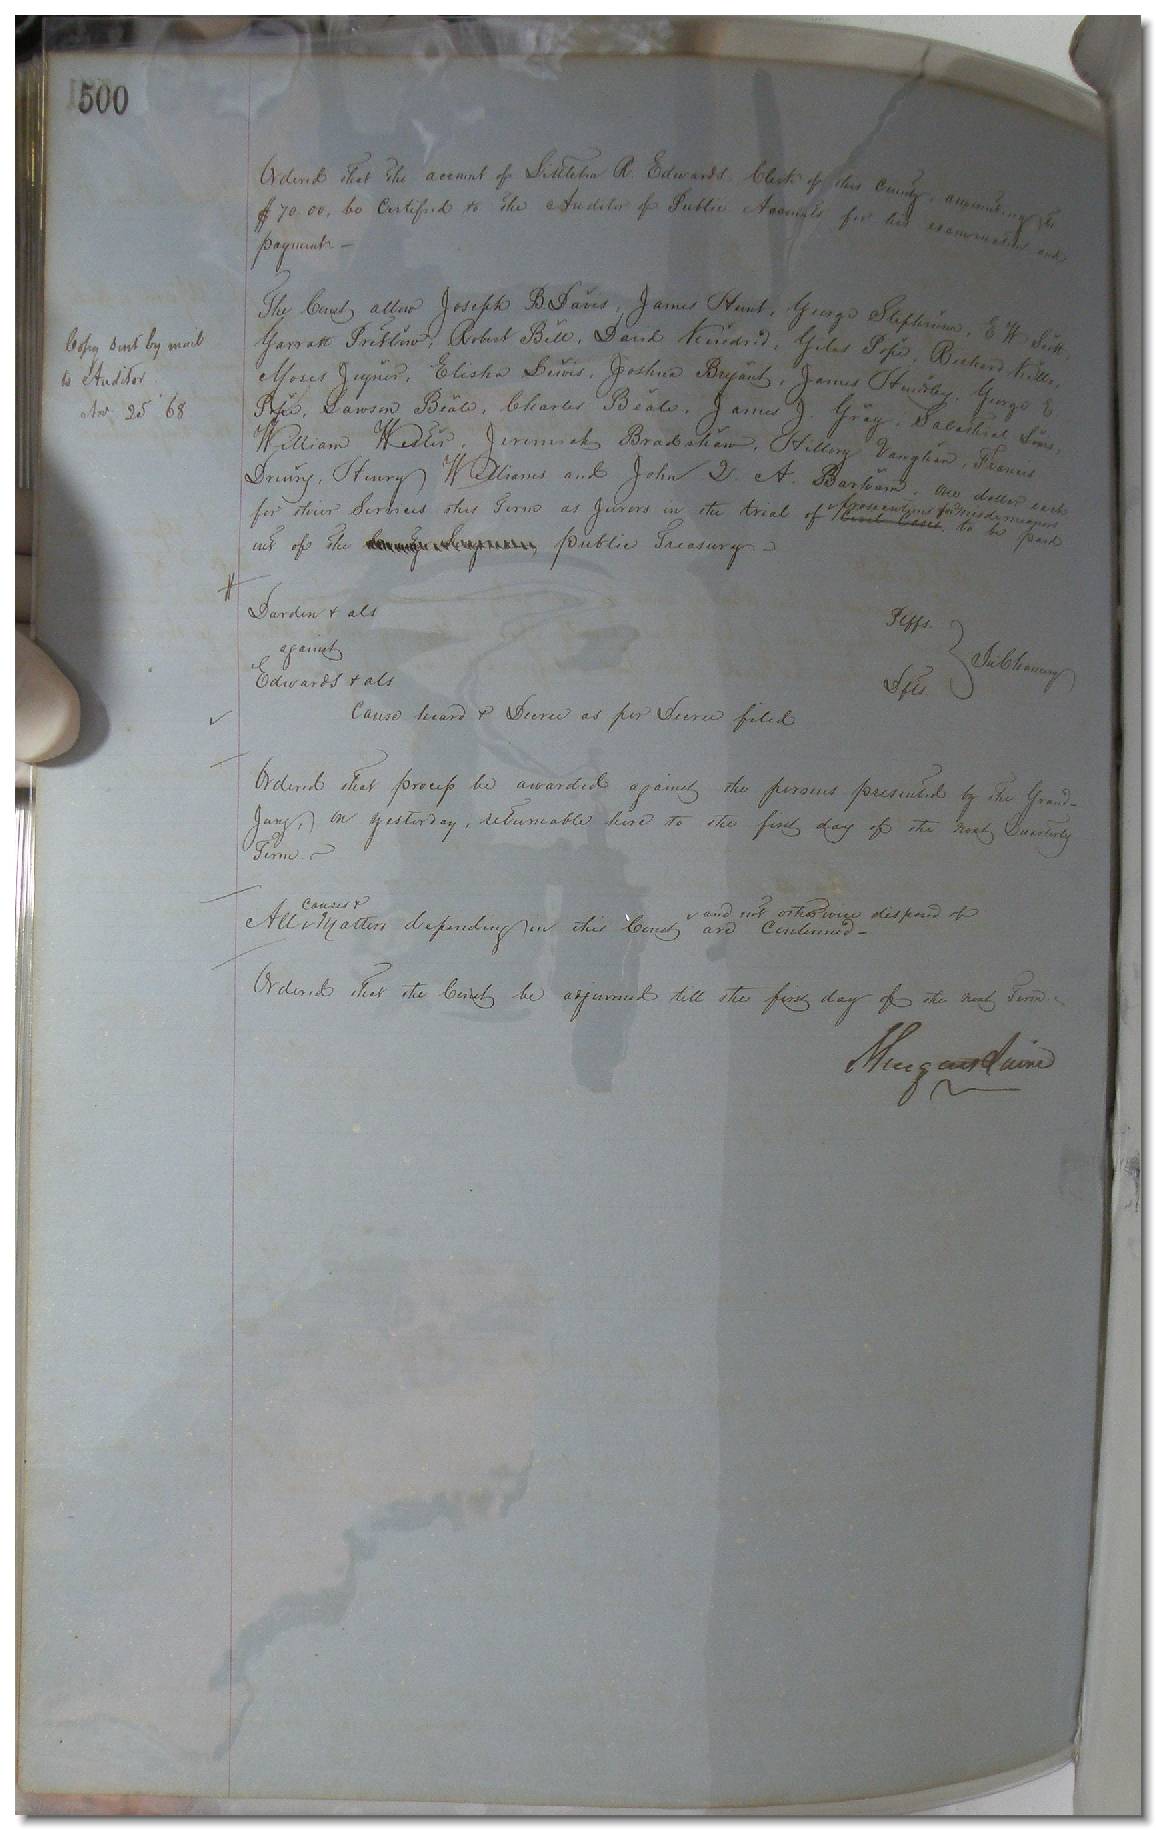 500
Ordered that the account of Littleton R. Edwards Clerk of this County, amounting to
$70.00, be Certified to the Auditor of Public Accounts for his examination and
payment—
Copy sent by mail
to Auditor
Nov 25 '68
The Court allow Joseph B. Davis, James Hunt, George Stephenson, E W
Garratt Pretlow, Robert Bell, David Kindred, Giles Pope, Richard
Moses Joyner, Elisha Lewis, Joshua Bryant, James George E
Pope, Dawson Beale, Charles Beale, James J. Gray, Salathial
William Jeremiah Bradshaw, Hillory Vaughan, Francis
Drewry, Henry Williams and John Q. A. Barham, one dollar each
for their Services this Term as Jurors in the trial of prosecutions for misdemeanors Civil Cases to be paid
out of the public Treasury—
Darden & als Plffs.
against In Chancery
Edwards & als Dfts
Cause heard & Decree as per Decree filed
Ordered that process be awarded against the persons presented by the Grand-
Jury, on yesterday, returnable here to the first day of the next Quarterly
Term.—
causes & and not otherwise disposed of
All Matters depending in this Court are Continued—
Ordered that the Court be adjourned till the first day of the next Term.